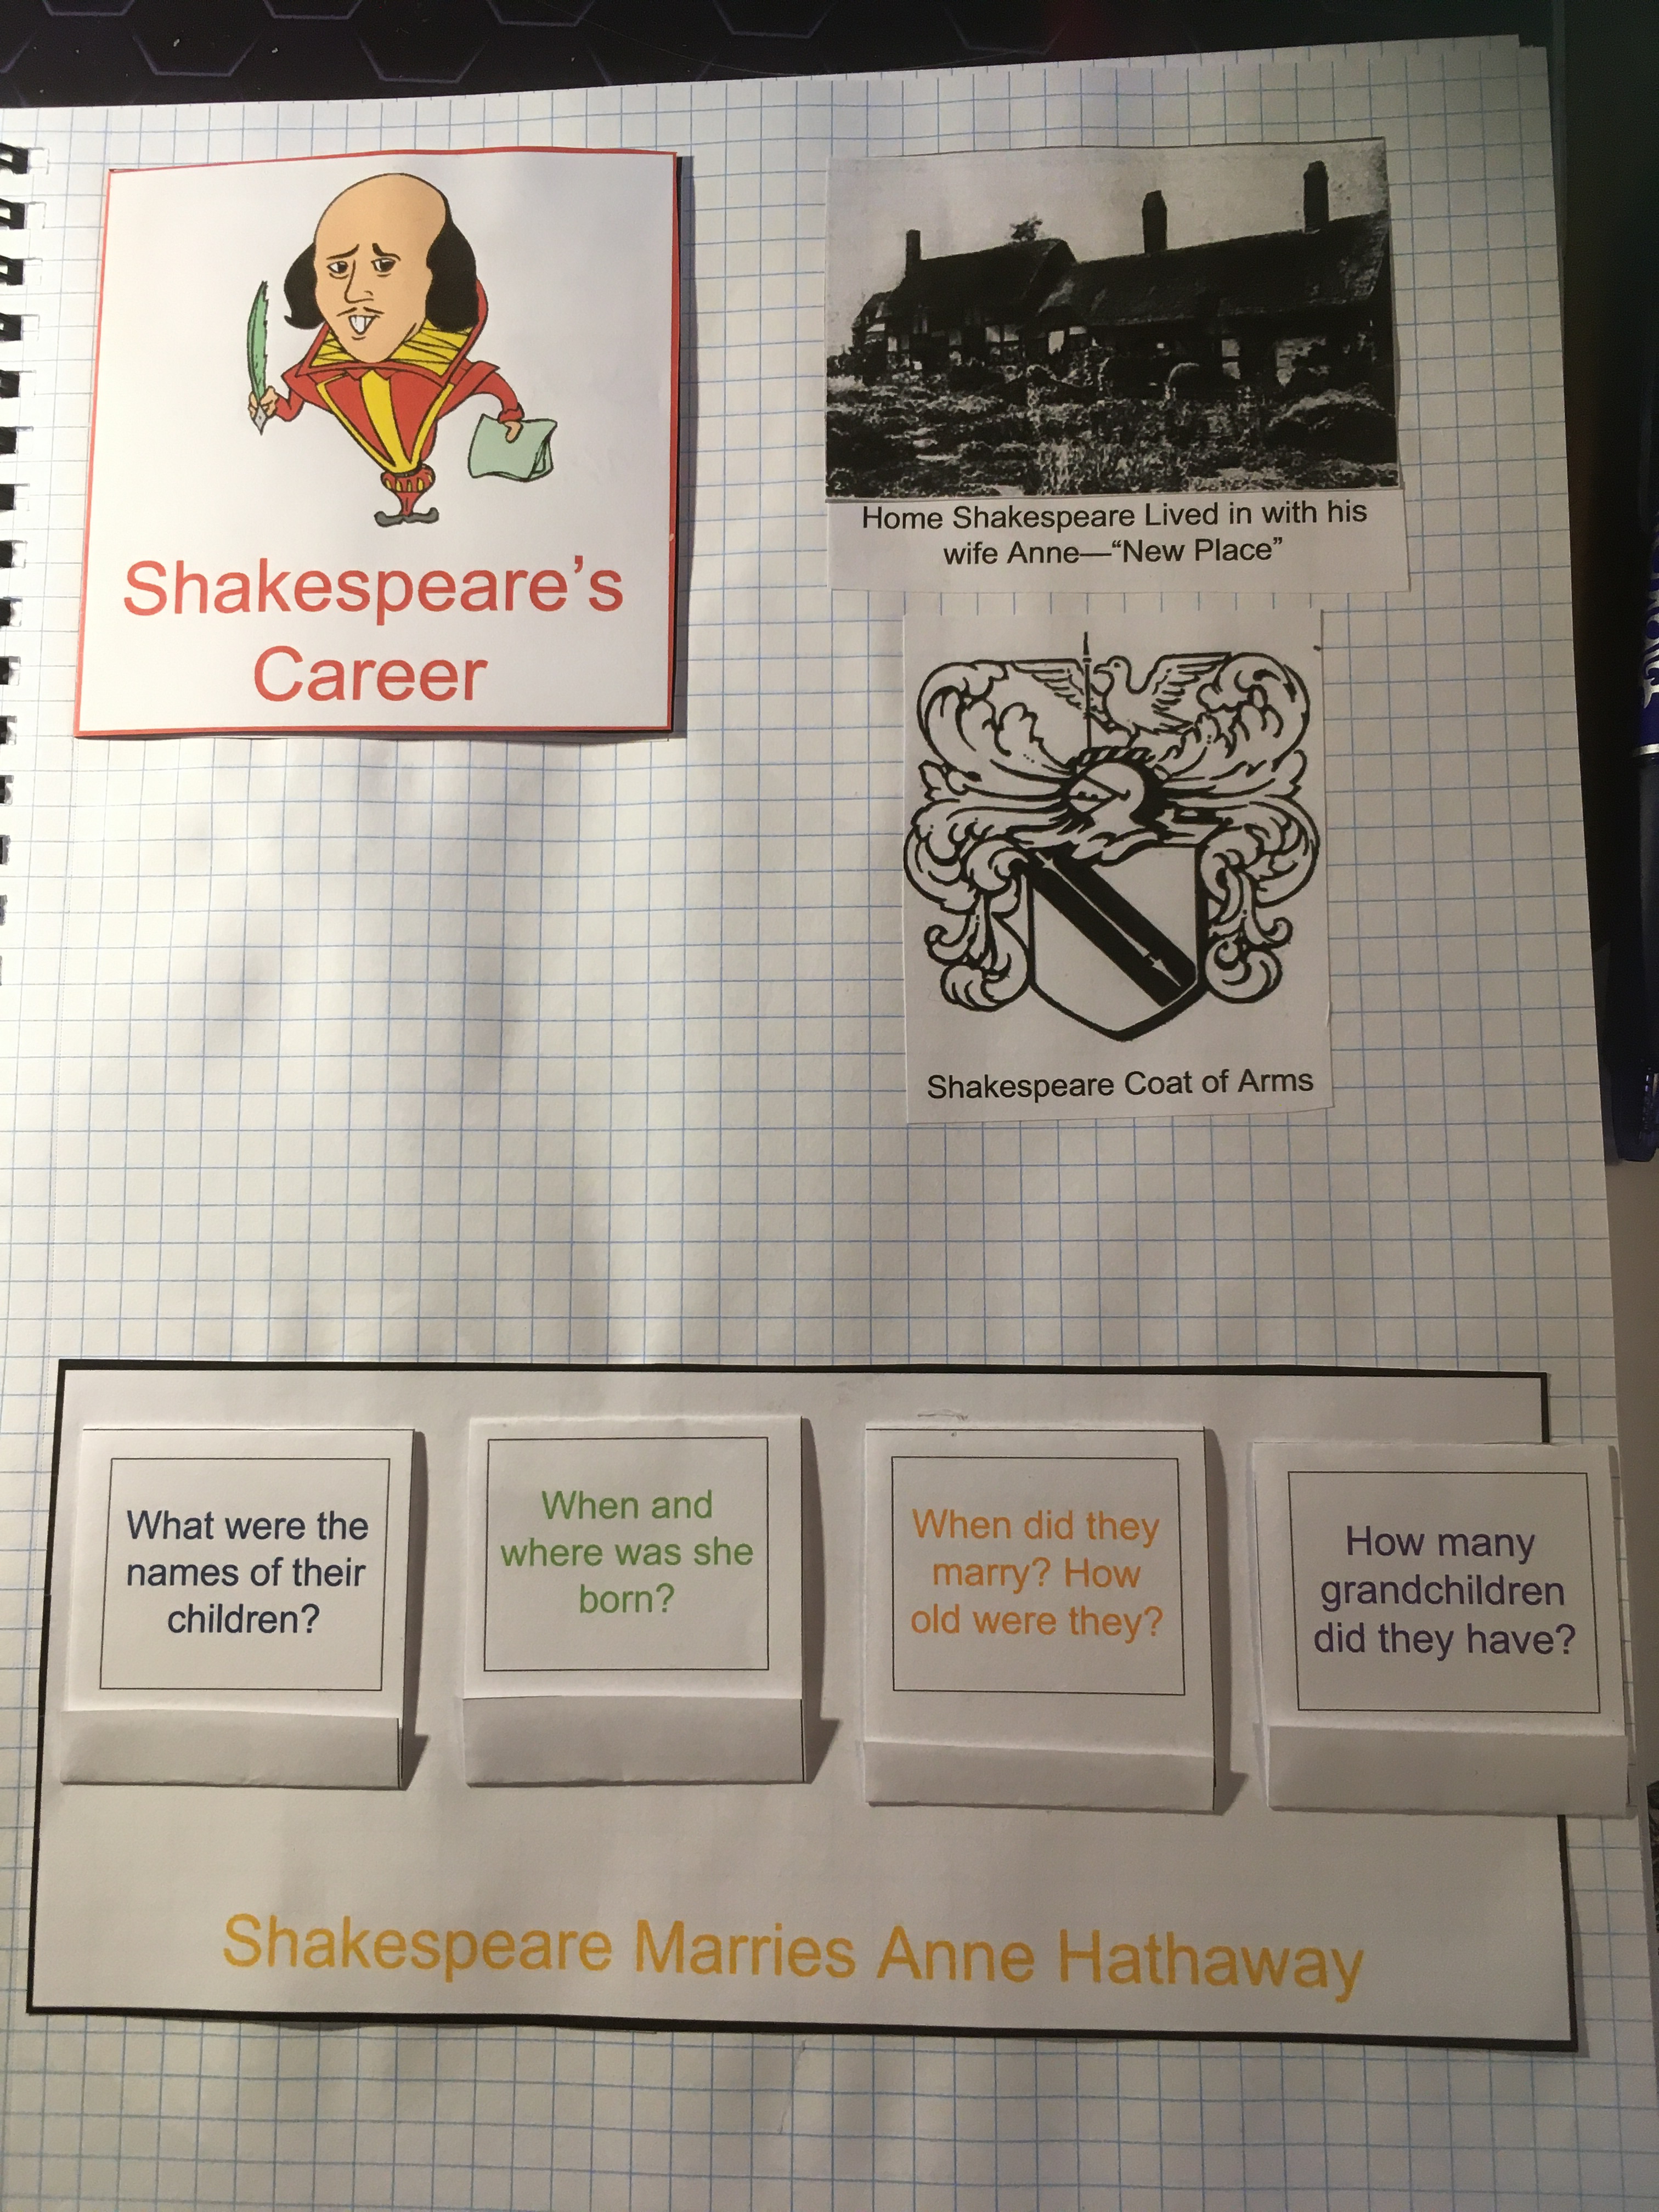 Shakespeare's
Career
Home Shakespeare Lived in with his
wife Anne—“New Place”
Shakespeare Coat of Arms
What were the
names of their
children?
When and
where was she
born?
When did they
marry? How
old were they?
How many
grandchildren
did they have?
Shakespeare Marries Anne Hathaway